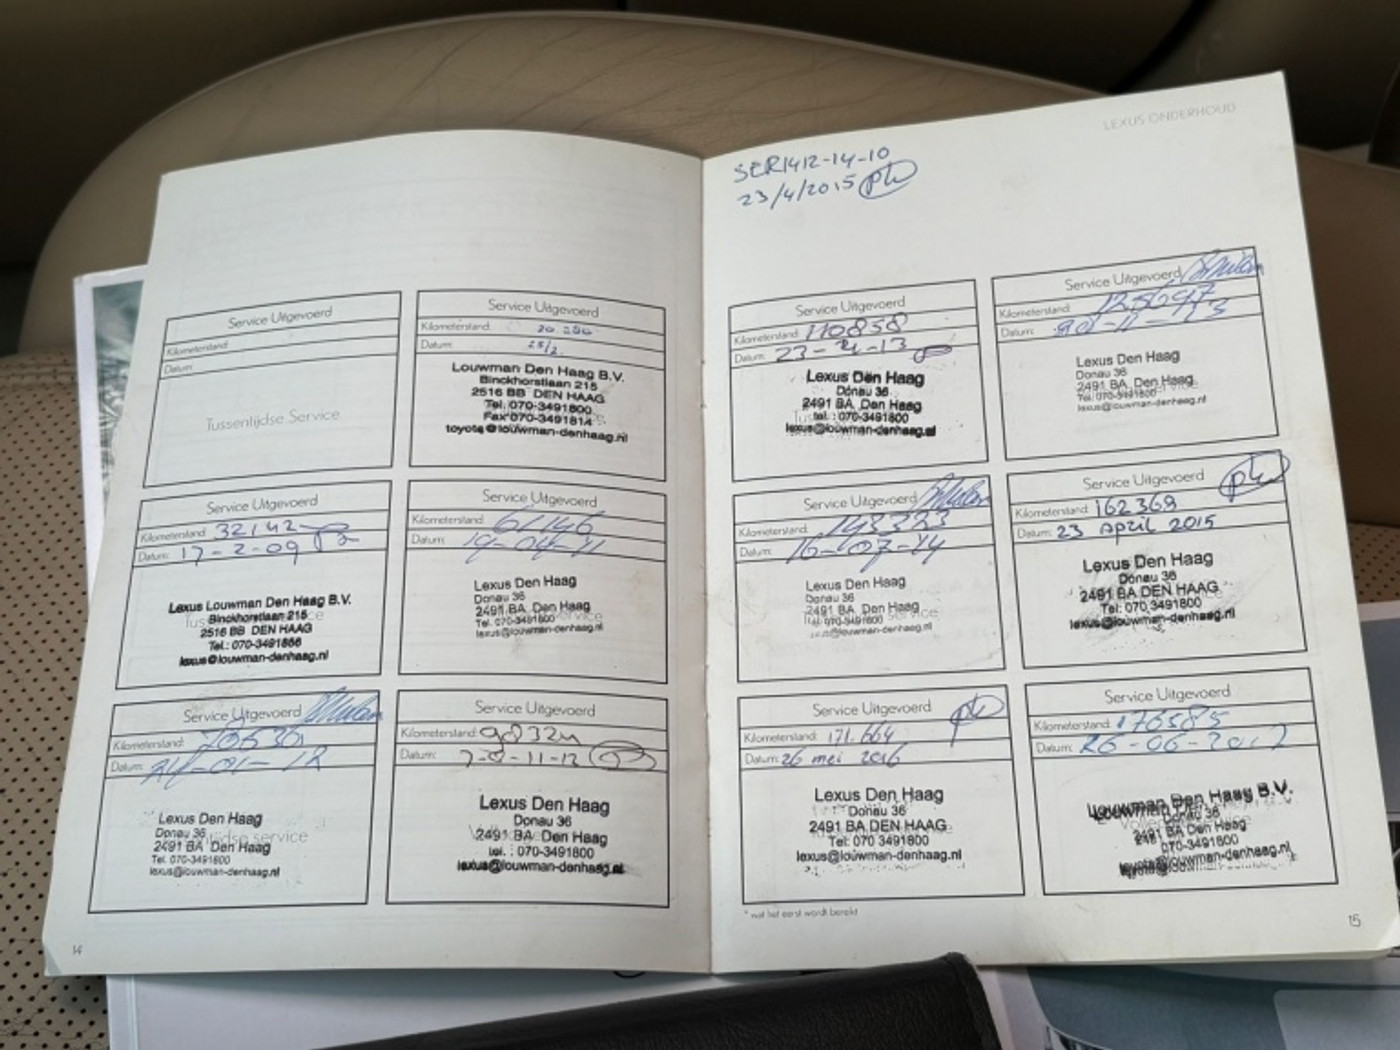 LEXUS ONDERHOUD
SER1412-14-10
23/4/2015
Service Uitgevoerd
Kilometerstand:
Datum:
Tussentijdse Service
Service Uitgevoerd
Kilometerstand:
Datum:
Louwman Den Haag B.V.
Binckhorstlaan 215
2516 BB DEN HAAG
Tel. 070-3491800
Fax 070-3491814
toyota@louwman-denhaag.nl
Service Uitgevoerd
Kilometerstand: 32142
Datum: 17-2-09
Lexus Louwman Den Haag B.V.
Binckhorstlaan 215
2516 BB DEN HAAG
Tel.: 070-3491866
lexus@louwman-denhaag.nl
Service Uitgevoerd
Kilometerstand: 61146
Datum: 19-04-11
Lexus Den Haag
Donau 36
2491 BA Den Haag
Tel. 070-3491800
lexus@louwman-denhaag.nl
Service Uitgevoerd
Kilometerstand:
Datum: 24-01-12
Lexus Den Haag
Donau 36
2491 BA Den Haag
Tel. 070-3491800
lexus@louwman-denhaag.nl
Service Uitgevoerd
Kilometerstand:
Datum:
Lexus Den Haag
Donau 36
2491 BA Den Haag
tel. : 070-3491800
lexus@louwman-denhaag.nl
14
Service Uitgevoerd
Kilometerstand: 110858
Datum: 23-4-13
Lexus Den Haag
Donau 36
2491 BA Den Haag
tel. : 070-3491800
lexus@louwman-denhaag.nl
Service Uitgevoerd
Kilometerstand:
Datum:
Lexus Den Haag
Donau 36
2491 BA Den Haag
Tel. 070-3491800
lexus@louwman-denhaag.nl
Service Uitgevoerd
Kilometerstand: 143323
Datum: 16-07-14
Lexus Den Haag
Donau 36
2491 BA Den Haag
Tel. 070-3491800
lexus@louwman-denhaag.nl
Service Uitgevoerd
Kilometerstand: 162369
Datum: 23 april 2015
Lexus Den Haag
Donau 36
2491 BA DEN HAAG
Tel: 070 3491800
lexus@louwman-denhaag.nl
Service Uitgevoerd
Kilometerstand: 171.664
Datum: 26 mei 2016
Lexus Den Haag
Donau 36
2491 BA DEN HAAG
Tel: 070 3491800
lexus@louwman-denhaag.nl
Service Uitgevoerd
Kilometerstand: 176585
Datum: 26-06-2017
Louwman Den Haag B.V.
Donau 36
2491 BA Den Haag
070-3491800
* wat het eerst wordt bereikt
15